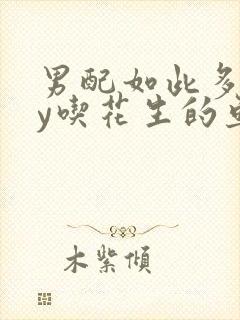 男配如此多
y喫花生的
木紫傾